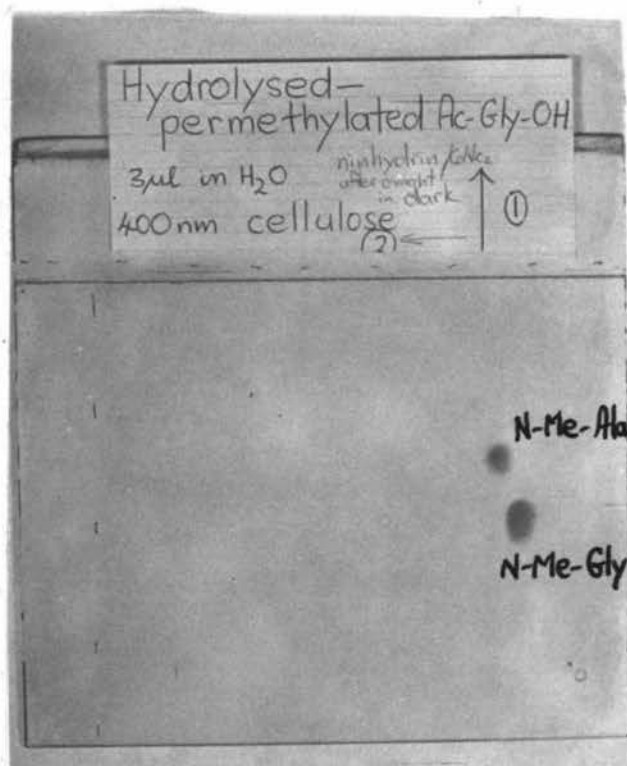 Hydrolysed-
permethylated Ac-Gly-OH
3μl in H₂O
ninhydrin/
after o'night
in dark
①
400nm cellulose
②
N-Me-Ala
N-Me-Gly